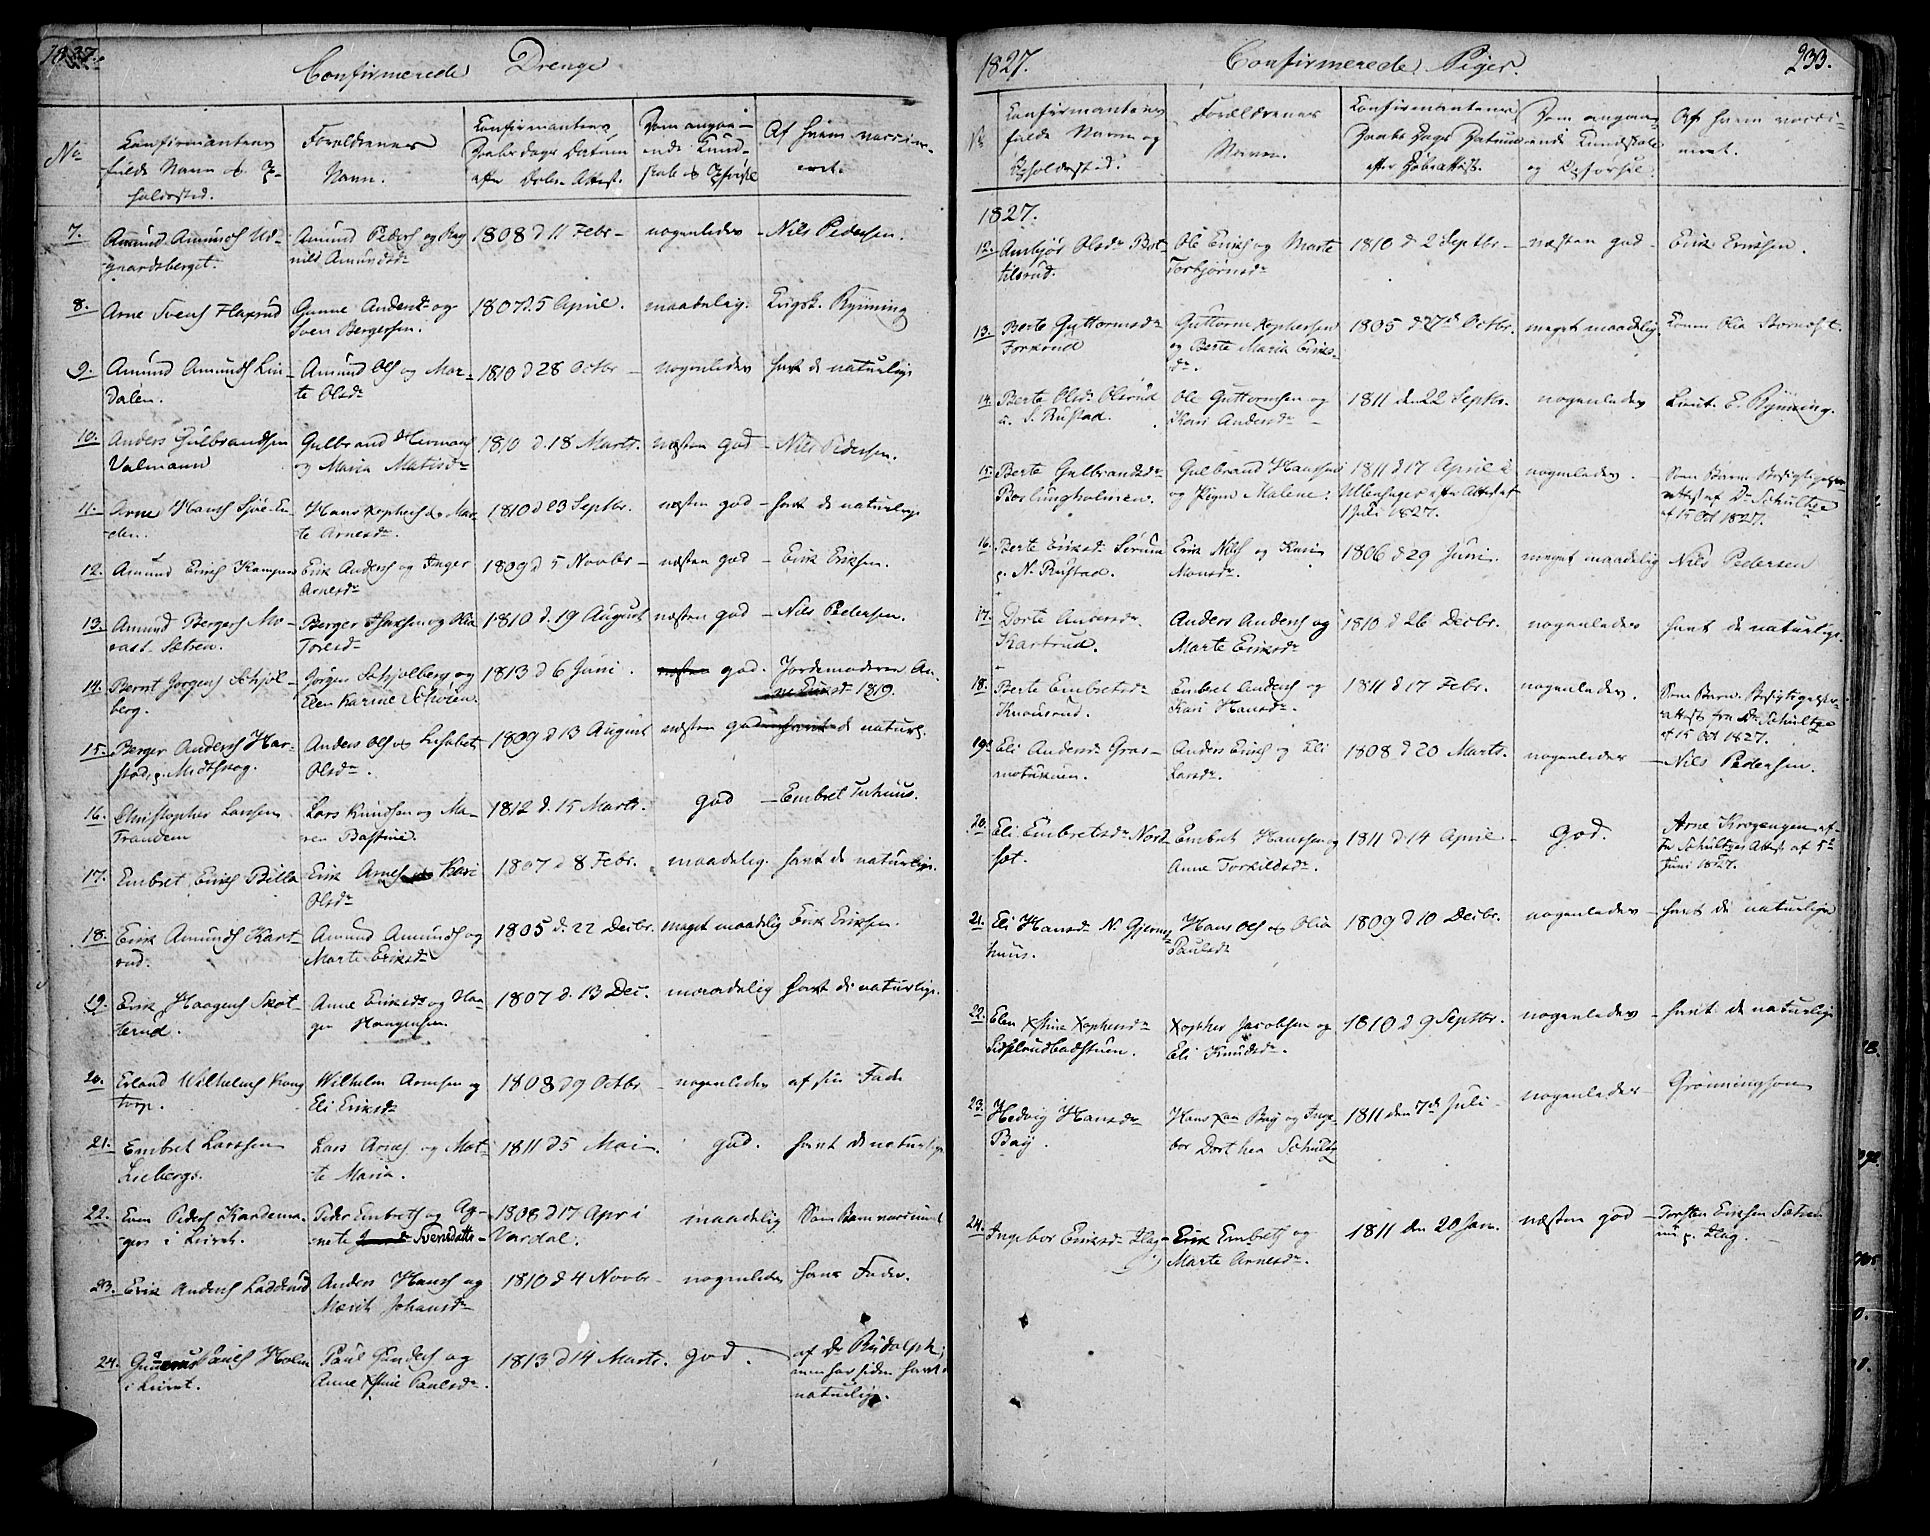 1827.
Confirmerede Drenge
No
Confirmantens
fulde Navn og Op-
holdssted.
Forældrenes
Navn.
Confirmantens
Daabs Dags Datum
efter Døbe Attest.
Dom angaa-
ende Kund-
skab og Opførsel
Af hvem vacci-
neret.
7.
Amund Amunds Ud-
gaardsberget.
Amund Peders og Rag
nild Amundsdr
1808 d 11 Febr
nogenledes
Nils Pedersen.
8.
Arne Svens Flaxrud
Gunne Andersdr og
Sven Bergersen.
1807 d. 5 April.
maadelig.
Krigsk. Rynning
9.
Amund Amunds Lin-
dalen.
Amund Ols og Mar-
te Olsdr
1810 d 28 Octbr
nogenledes
havt de naturlige
10.
Anders Gulbrandsen
Valmann
Gulbrand Hermans
og Maria Matisdr
1810 d. 18 Marts.
næsten god
Nils Pedersen.
11.
Arne Hans Sjøe-En-
den.
Hans Xophers og Mar-
te Arnesdr.
1810 d 23 Septbr.
næsten god
havt de naturlige
12.
Amund Erichs Kampen
Erik Anders og Inger
Arnesdr
1809 d 5 Novbr
næsten god
Erik Eriksen.
13.
Amund Bergers Mo-
rast. Sætren.
Berger Isaksen og Olia
Toresdr
1810 d. 19 August
næsten god
Nils Pedersen.
14.
Bernt Jørgens Schjøl-
berg.
Jørgen Schjølberg og
Elen Karine Schøien.
1813 d 6 Juni.
næsten god.
Jordemoderen An-
ne Eriksdr 1819.
15.
Berger Anders Har-
stad, p. Midtskog.
Anders Ols og Lisabet
Olsdr.
1809 d 13 August
næsten god
havt de naturl.
16.
Christopher Larssen
Trandem
Lars Knudsen og Ma-
ren Bastine.
1812 d. 15 Marts.
god
Embret Tuhuus.
17.
Embret Erichs Billa
Erik Arnes og Kari
Olsdr
1807 d 8 Febr.
maadelig.
havt de naturlige.
18.
Erik Amunds Kart-
rud.
Amund Amunds og
Marte Eriksdr
1805 d. 22 Decbr.
meget maadelig
Erik Eriksen.
19.
Erik Haagens Skot-
terud.
Anne Eriksdr og Haa-
gen Haagensen.
1807 d. 13 Dec.
maadelig
havt de naturlige.
20.
Erland Wilhelms Kong
torp.
Wilhelm Arnesen og
Eli Eriksdr
1808 d 9 Octbr.
nogenledes
af sin Fader
21.
Embret Larssen
Lieberg.
Lars Arnes og Mar-
te Maria.
1811 d 5 Mai.
god.
havt de naturlige
22.
Even Peders Kardema-
ger i Leiret.
Peder Embrets og Ag-
nete Svensdatter
1808 d 17 Apr i
Vardal.
maadelig
Som Barn vaccineret
23.
Erik Anders Laddrud
Anders Hans og
Marit Johansdr
1810 d 4 Novbr
nogenledes
hans Fader.
24.
Paul Gunders og
Anne Xstine Paulsdr.
Pauls Holm
i Leiret.
1813 d 14 Marts.
god.
af Dr Rudolph;
men har siden havt
naturlige.
1827.
Confirmerede Piger.
233.
No
Confirmantens
fulde Navn og
Opholdssted.
Forældrenes
Navn.
Confirmantens
Daabs Dags Datum
efter Døbe Attest.
Dom angaa-
ende Kundskab
og Opførsel.
Af hvem vacci-
neret.
1827.
12.
Ambjør Olsdr Bot-
tilsrud.
Ole Eriks og Marte
Torbjørnsdr
1810 d 2 Septbr
næsten god
Erik Eriksen.
13.
Berte Guttormsdr
Forkrud
Guttorm Xophersen
og Berte Maria Eriks-
dr.
1805 d 27de Octbr.
meget maadelig.
14.
Berte Olsdr Olsrud
p. S. Rustad.
Ole Guttormsen og
Kari Andersdr
1811 den 22 Septbr.
nogenledes
Lieut. E. Rynning.
15.
Berte Gulbrandsdr
Borlungholmen.
Gulbrand Hanssen
og Pigen Malene.
1811 d 17 April i
Ullensager efter Attest af
1 Juli 1827.
nogenledes.
Som Barn. Besigtigelses
attest af Dr Schultze
af 15 Oct 1827.
16.
Berte Eriksdr Sørum
p. N. Rustad.
Erik Nils og Kari
Monsdr.
1806 d 29 Juni.
meget maadelig
Nils Pedersen
17.
Dorte Andersdr
Kartrud.
Anders Anders og
Marte Eriksdr
1810 d 26 Decbr.
nogenledes
havt de naturlige.
18.
Berte Embretsdr
Knausrud.
Embret Anders og
Kari Hansdr.
1811 d 17 Febr.
nogenledes.
Som Barn. Besigtigelses-
attest fra Dr Schultze
af 15 Oct 1827.
19.
Eli Andersdr Gras-
motuen.
Anders Erichs og Eli
Larsdr.
1808 d 20 Marts.
nogenledes
Nils Pedersen.
20.
Eli Embretsdr Nord-
set.
Embret Hanssen og
Anne Torkildsdr.
1811 d 14 April
God.
Arne Krogengen ef-
ter Schultzes Attest af 5te
Juni 1827.
21.
Eli Hansdr N. Gjerms-
huus.
Hans Ols og Olia
Paulsdr
1809 d 10 Decbr.
nogenledes
havt de naturlige
22.
Elen Xstine Xophersdr
Sidselrudbadstuen.
Xopher Jacobsen og
Eli Knudsdr.
1810 d 9 Septbr.
nogenledes
havt de naturlige
23.
Hedvig Hansdr
Bay.
Hans Xan Bay og Inge-
bor Dorthea Schultz
1811 den 7de Juli
nogenledes
Grønningson
24.
Ingebor Eriksdr Flag-
Erik Embrets og
Marte Arnesdr.
1811 den 20 Jan.
næsten god
Torsten Eriksen Sætren
p. Flag.